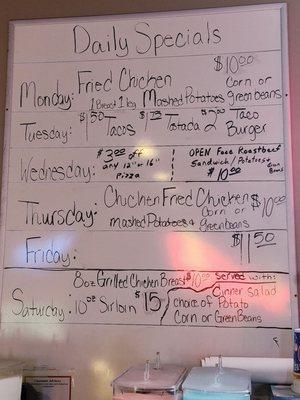 Daily Specials
$10.00
Monday: Fried Chicken Corn or
1 Breast 1 leg Mashed Potatoes green beans
Tuesday: $1.50 Tacos $1.75 Tostada $2.00 Taco Burger
$3.00 off OPEN Face Roastbeef
Wednesday: any 12" or 16" Sandwich/Potatoes+ Green Beans
Pizza $10.00
Thursday: Chicken Fried Chicken $10.00
Corn or
Mashed Potatoes + Green Beans
Friday: $11.50
8oz Grilled Chicken Breast $10.00 Served with:
Dinner Salad
Saturday: 10oz Sirloin $15 choice of Potato
Corn or Green Beans